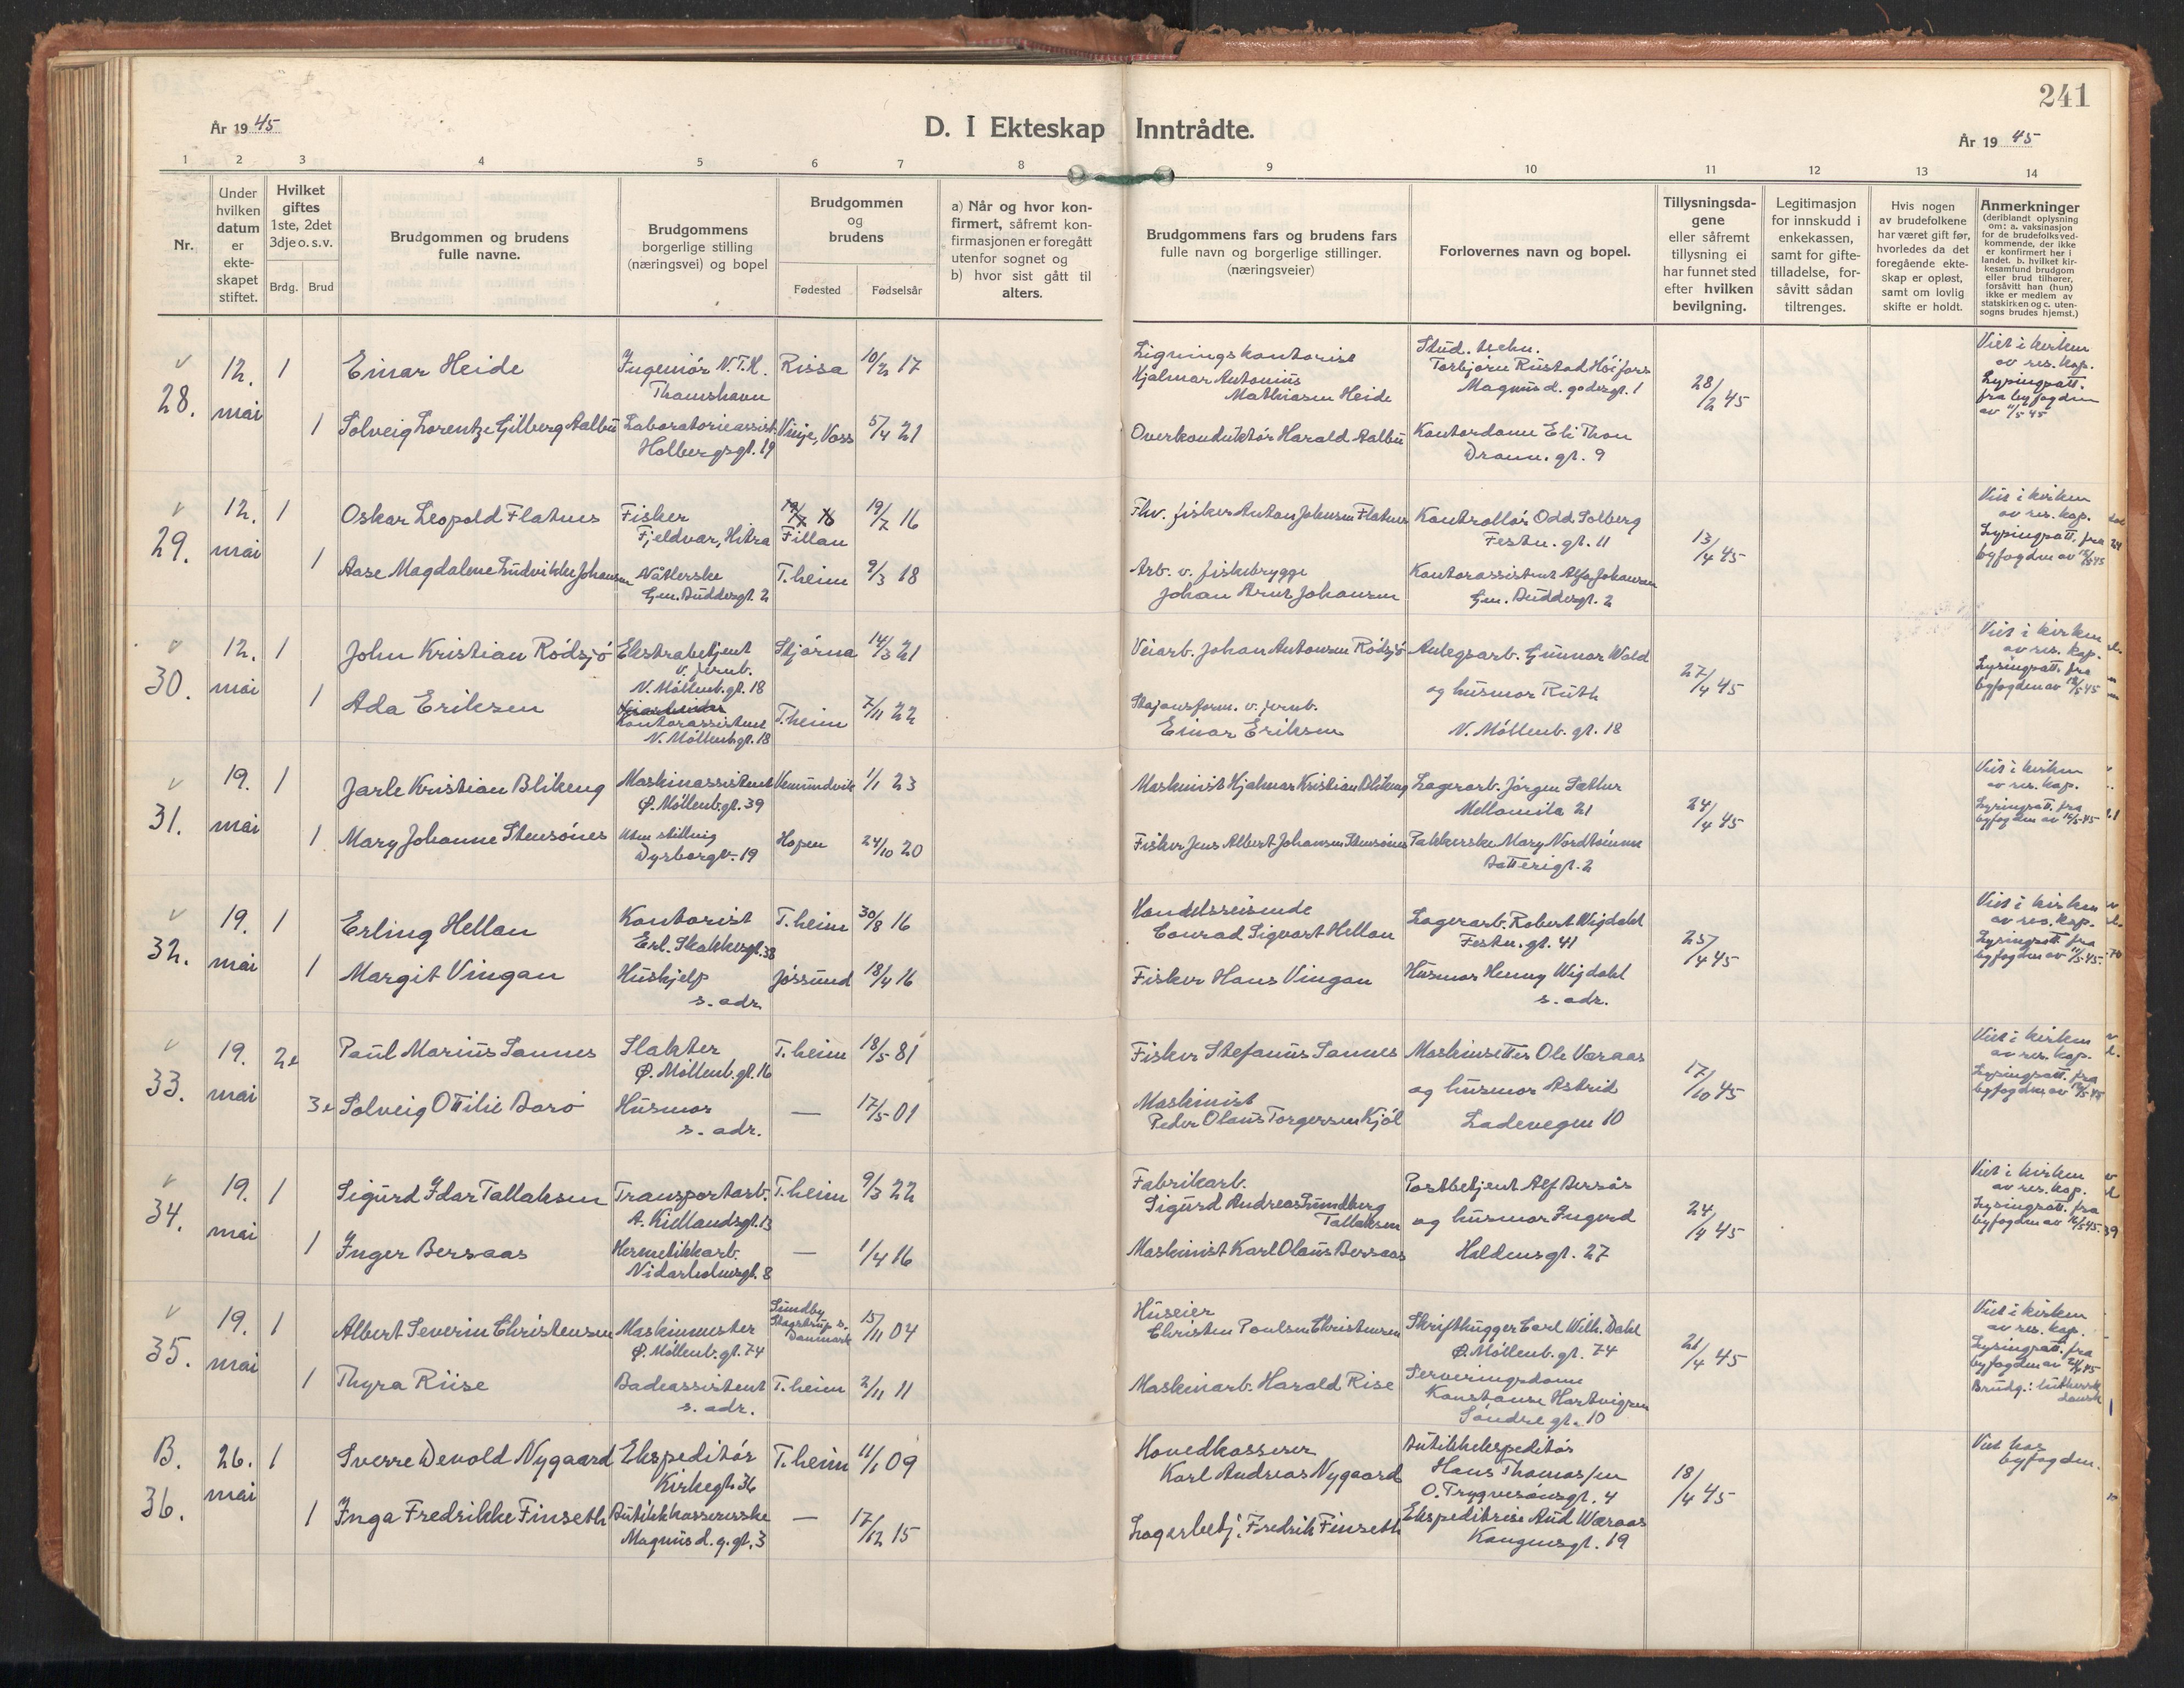 241
År 1945
D. I Ekteskap Inntrådte.
År 1945
1 2 3 4 5 6 7 8 9 10 11 12 13 14
Nr.
Under hvilken datum er ekte-skapet stiftet.
Hvilket giftes 1ste, 2det 3dje o. s. v.
Brdg. Brud
Brudgommen og brudens fulle navne.
Brudgommens borgerlige stilling (næringsvei) og bopel
Brudgommen og brudens
Fødested Fødselsår
a) Når og hvor kon-firmert, såfremt kon-firmasjonen er foregått utenfor sognet og
b) hvor sist gått til alters.
Brudgommens fars og brudens fars fulle navn og borgerlige stillinger. (næringsveier)
Forlovernes navn og bopel.
Tillysningsda-gene eller såfremt tillysning ei har funnet sted efter hvilken bevilgning.
Legitimasjon for innskudd i enkekassen, samt for gifte-tilladelse, for-såvitt sådan tiltrenges.
Hvis nogen av brudefolkene har været gift før, hvorledes da det foregående ekte-skap er opløst, samt om lovlig skifte er holdt.
Anmerkninger (deriblandt oplysning om: a. vaksinasjon for de brudefolks ved-kommende, der ikke er konfirmert her i landet. b. hvilket kir-kesamfund brudgom eller brud tilhører, forsåvitt han (hun) ikke er medlem av statskirken og c. uten-sogns brudes hjemst.)
28. 12. mai 1 Einar Heide
Ingeniör N.T.H.
Thamshavn
Rissa 10/2 17
Ligningskontorist
Hjalmar Antonius
Mathiasen Heide
Stud. techn.
Torbjørn Rustad Höifors
Magnus d. godesgt. 1
28/2 45
Viet i kirken
av res. kap.
Lysingsatt.
fra byfogden
av 11/5 45
1 Solveig Lorentze Gilberg Aalbu
Laboratorieassist.
Holbergsgt. 19
Vinje, Voss 5/4 21
Overkonduktör Harald Aalbu
Kontordame Eli Thon
Dronn. gt. 9
29. 12. mai 1 Oskar Leopold Flatnes
Fisker
Fjeldvar, Hitra
Fillan 19/7 16
Fhv. fisker Anton Johnsen Flatnes
Kontrollör Odd Solberg
Festn. gt. 11
13/4 45
Viet i kirken
av res. kap.
Lysingsatt. fra
byfogden av
1 Aase Magdalene Ludvikke Johansen
Nåtlerske
Gen. Buddesgt. 2
T.heim 9/3 18
Arb. v. fiskebrygge
Johan Arnt Johansen
Kontorassistent Alfa Johansen
Gen. Buddesgt. 2
30. 12. mai 1 John Kristian Rödsjö
Ekstrabetjent
v. jernb.
N. Möllenb. gt. 18
Stjörna 14/3 21
Veiarb. Johan Antonsen Rödsjö
Anlegsarb. Gunnar Wold
og husmor Ruth
N. Möllenb. gt. 18
27/4 45
Viet i kirken
av res. kap.
Lysingsatt. fra
byfogden av 12/5 45
1 Ada Eriksen
Kontorassistent
N. Möllenb.gt. 18
T.heim 7/11 22
Stasjonsform. v. jernb.
Einar Eriksen
31. 19. mai 1 Jarle Kristian Blikeng
Maskinassistent
Ø. Möllenb. gt. 39
Vemundvik 1/1 23
Maskinist Hjalmar Kristian Blikeng
Lagerarb. Jörgen Sæther
Mellomila 21
24/4 45
Viet i kirken
av res. kap.
Lysingsatt. fra
byfogden av
1 Mary Johanne Stensönes
Uten stilling
Dyrborgv. 19
Hopen 24/10 20
Fisker Jens Albert Johansen Stensönes
Pakkerske Mary Nordtömme
Batterigt. 2
32. 19. mai 1 Erling Hellan
Kontorist
Erl. Skakkesgt. 38
T.heim 30/8 16
Handelsreisende
Conrad Sigvart Hellan
Lagerarb. Robert Wigdahl
Festn. gt. 41
25/4 45
Viet i kirken
av res. kap.
Lysingsatt. fra
byfogden av
1 Margit Vingan
Hushjelp
s. adr.
Jössund 18/4 16
Fisker Hans Vingan
Husmor Henny Wigdahl
s. adr.
33. 19. mai 2e Paul Marius Sannes
Slakter
Ø. Möllenb. gt. 16
T.heim 18/5 81
Fisker Stefanus Sannes
Maskinsetter Ole Væraas
og husmor Astrid
Ladevegen 10
17/10 45
Viet i kirken
av res. kap.
Lysingsatt. fra
byfogden av
3e Solveig Ottilie Borö
Husmor
s. adr.
— 17/5 01
Maskinist
Peder Olaus Torgersen Kjöl
34. 19. mai 1 Sigurd Idar Tallaksen
Transportarb.
A. Kiellandsgt. 13
T.heim 9/3 22
Fabrikarb.
Sigurd Andreas Lundberg
Tallaksen
Postbetjent Alf Bersås
og husmor Ingerd
Haldensgt. 27
24/4 45
Viet i kirken
av res. kap.
Lysingsatt. fra
byfogden av
1 Inger Bersaas
Hermetikkarb.
Nidarholmsgt. 8
— 1/4 16
Maskinist Karl Olaus Bersaas
35. 19. mai 1 Albert Severin Christensen
Maskinmester
Ø. Möllenb. gt. 74
Sundby
Skagstrup s.
Danmark
15/11 04
Huseier
Christen Poulsen Christensen
Skrifthugger Carl Wilh. Dahl
Ø. Möllenb. gt. 74
21/4 45
Viet i kirken
av res. kap.
Lysingsatt. fra
byfogden av
Brudg.: luthersk
dansk
1 Thyra Riise
Badeassistent
s. adr.
T.heim 2/11 11
Maskinarb. Harald Rise
Serveringsdame
Konstanse Hartvigsen
Söndre gt. 10
B. 36. 26. mai 1 Sverre Devold Nygaard
Ekspeditör
Kirkegt. 36
T.heim 11/1 09
Hovedkasserer
Karl Andreas Nygaard
Butikkekspeditör
Hans Thomassen
O. Trygvesönsgt. 4
18/4 45
Viet hos
byfogden.
1 Inga Fredrikke Finseth
Butikkkassererske
Magnus d. g. gt. 3
— 17/12 15
Lagerbetj. Fredrik Finseth
Ekspeditrise Aud Wæraas
Kongensgt. 19